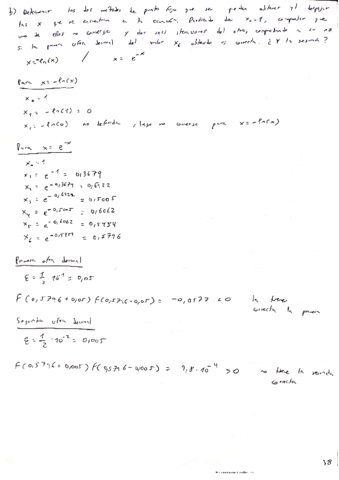 b) Determinar los dos métodos de punto fijo que se pueden obtener al despejar
las x que se encuentran en la ecuación. Partiendo de x₀=1, comprobar que
uno de ellos no converge y dar seis iteraciones del otro, comprobando si o no
si la primera cifra decimal del valor x₆ obtenido es correcta. ¿Y la segunda?
x=-ln(x) / x = e^-x
Para x=-ln(x)
x₀=1
x₁=-ln(1) = 0
x₂=-ln(0) no definida, luego no converge para x=-ln(x)
Para x=e^-x
x₀=1
x₁= e^-1 = 0,3679
x₂= e^-0,3679 = 0,6922
x₃= e^-0,6922 = 0,5005
x₄= e^-0,5005 = 0,6062
x₅= e^-0,6062 = 0,5454
x₆= e^-0,5454 = 0,5796
Primera cifra decimal
ε = 1/2 · 10^-1 = 0,05
F(0,5796+0,05) F(0,5796-0,05) = -0,0177 < 0 la tiene
correcta la primera
Segunda cifra decimal
ε = 1/2 · 10^-2 = 0,005
F(0,5796+0,005) F(0,5796-0,005) = 9,8·10^-4 > 0 → tiene la segunda
correcta
38